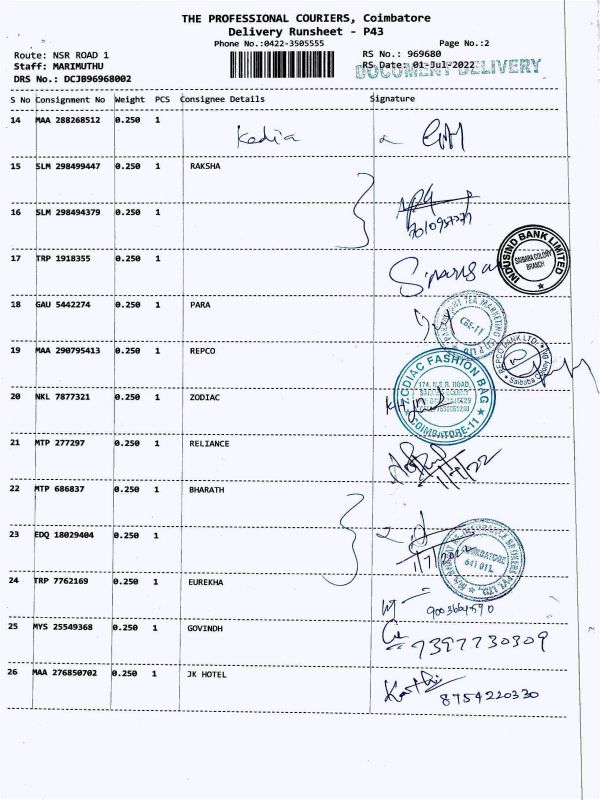 THE PROFESSIONAL COURIERS, Coimbatore
Delivery Runsheet - P43
Phone No.:0422-3505555 Page No.:2
Route: NSR ROAD 1 RS No.: 969680
Staff: MARIMUTHU RS Date: 01-Jul-2022
DRS No.: DCJB96968002 DOCUMENT DELIVERY
S No Consignment No Weight PCS Consignee Details Signature
14 MAA 288268512 0.250 1 Kedia
15 SLM 298499447 0.250 1 RAKSHA
16 SLM 298494379 0.250 1
17 TRP 1918355 0.250 1
INDUSIND BANK LIMITED
SAIBABA COLONY
BRANCH
18 GAU 5442274 0.250 1 PARA
CBE-11
19 MAA 290795413 0.250 1 REPCO
REPCO BANK LTD.
Saibaba
20 NKL 7877321 0.250 1 ZODIAC
ZODIAC FASHION BAG
174, N.S.R. ROAD,
COIMBATORE-11
21 MTP 277297 0.250 1 RELIANCE
1/7/22
22 MTP 686837 0.250 1 BHARATH
23 EDQ 18029404 0.250 1
COIMBATORE
641 012.
24 TRP 7762169 0.250 1 EUREKHA
9003664590
25 MYS 25549368 0.250 1 GOVINDH
7397730309
26 MAA 276850702 0.250 1 JK HOTEL
8754220330